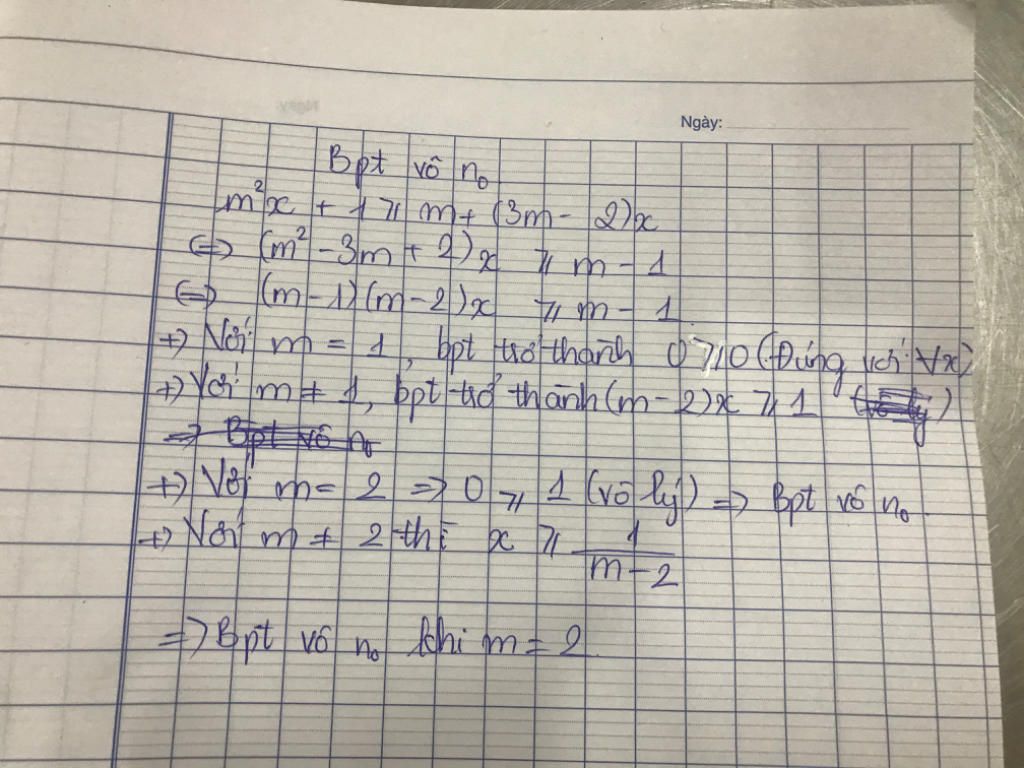 Ngày:
Bpt vô n₀
m²x + 1 ⩾ m + (3m - 2)x
<=> (m² - 3m + 2)x ⩾ m - 1
<=> (m - 1)(m - 2)x ⩾ m - 1
+) Với m = 1, bpt trở thành 0 ⩾ 0 (Đúng với ∀x)
+) Với m ≠ 1, bpt trở thành (m - 2)x ⩾ 1 (vô lý)
=> Bpt vô n₀
+) Với m = 2 => 0 ⩾ 1 (vô lý) => Bpt vô n₀
+) Với m ≠ 2 thì x ⩾ 1/(m - 2)
=> Bpt vô n₀ khi m = 2